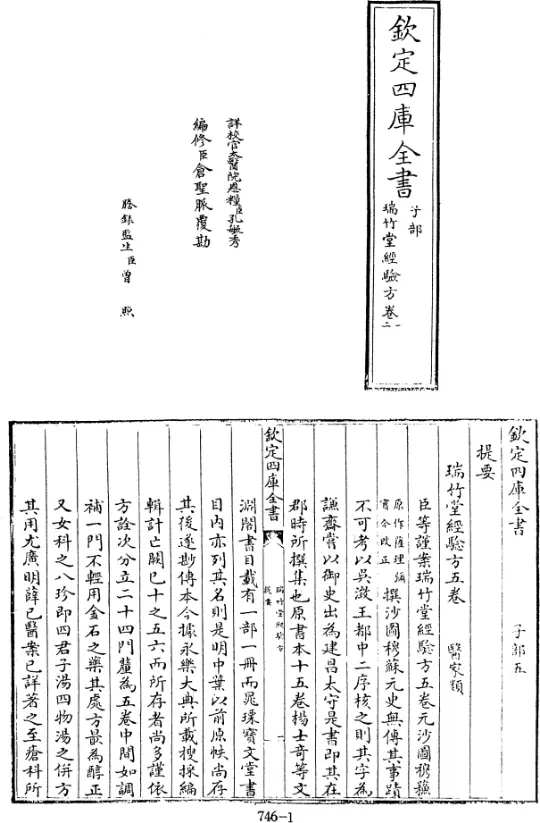 欽定四庫全書
子部
瑞竹堂經驗方卷一二
詳校官太醫院恩糧臣孔毓秀
編修臣倉聖脈覆勘
謄錄監生臣曾照
欽定四庫全書 子部五
提要
瑞竹堂經驗方五卷 醫家類
臣等謹案瑞竹堂經驗方五卷元沙圖穆蘇
原作薩理彌實今改正撰沙圖穆蘇元史無傳其事蹟
不可考以吳澂王都中二序核之則其字為
謙齋嘗以御史出為建昌太守是書即其在
郡時所撰集也原書本十五卷楊士奇等文
欽定四庫全書 提要 瑞竹堂經驗方 一
淵閣書目載有一部一冊而晁瑮寶文堂書
目內亦列其名則是明中葉以前原帙尚存
其後遂尠傳本今據永樂大典所載搜採編
輯計亡闕已十之五六而所存者尚多謹依
方詮次分立二十四門釐為五卷中間如調
補一門不輕用金石之藥其處方最為醇正
又女科之八珍即四君子湯四物湯之併方
其用尤廣明薛已醫案已詳著之至瘡科所
746-1